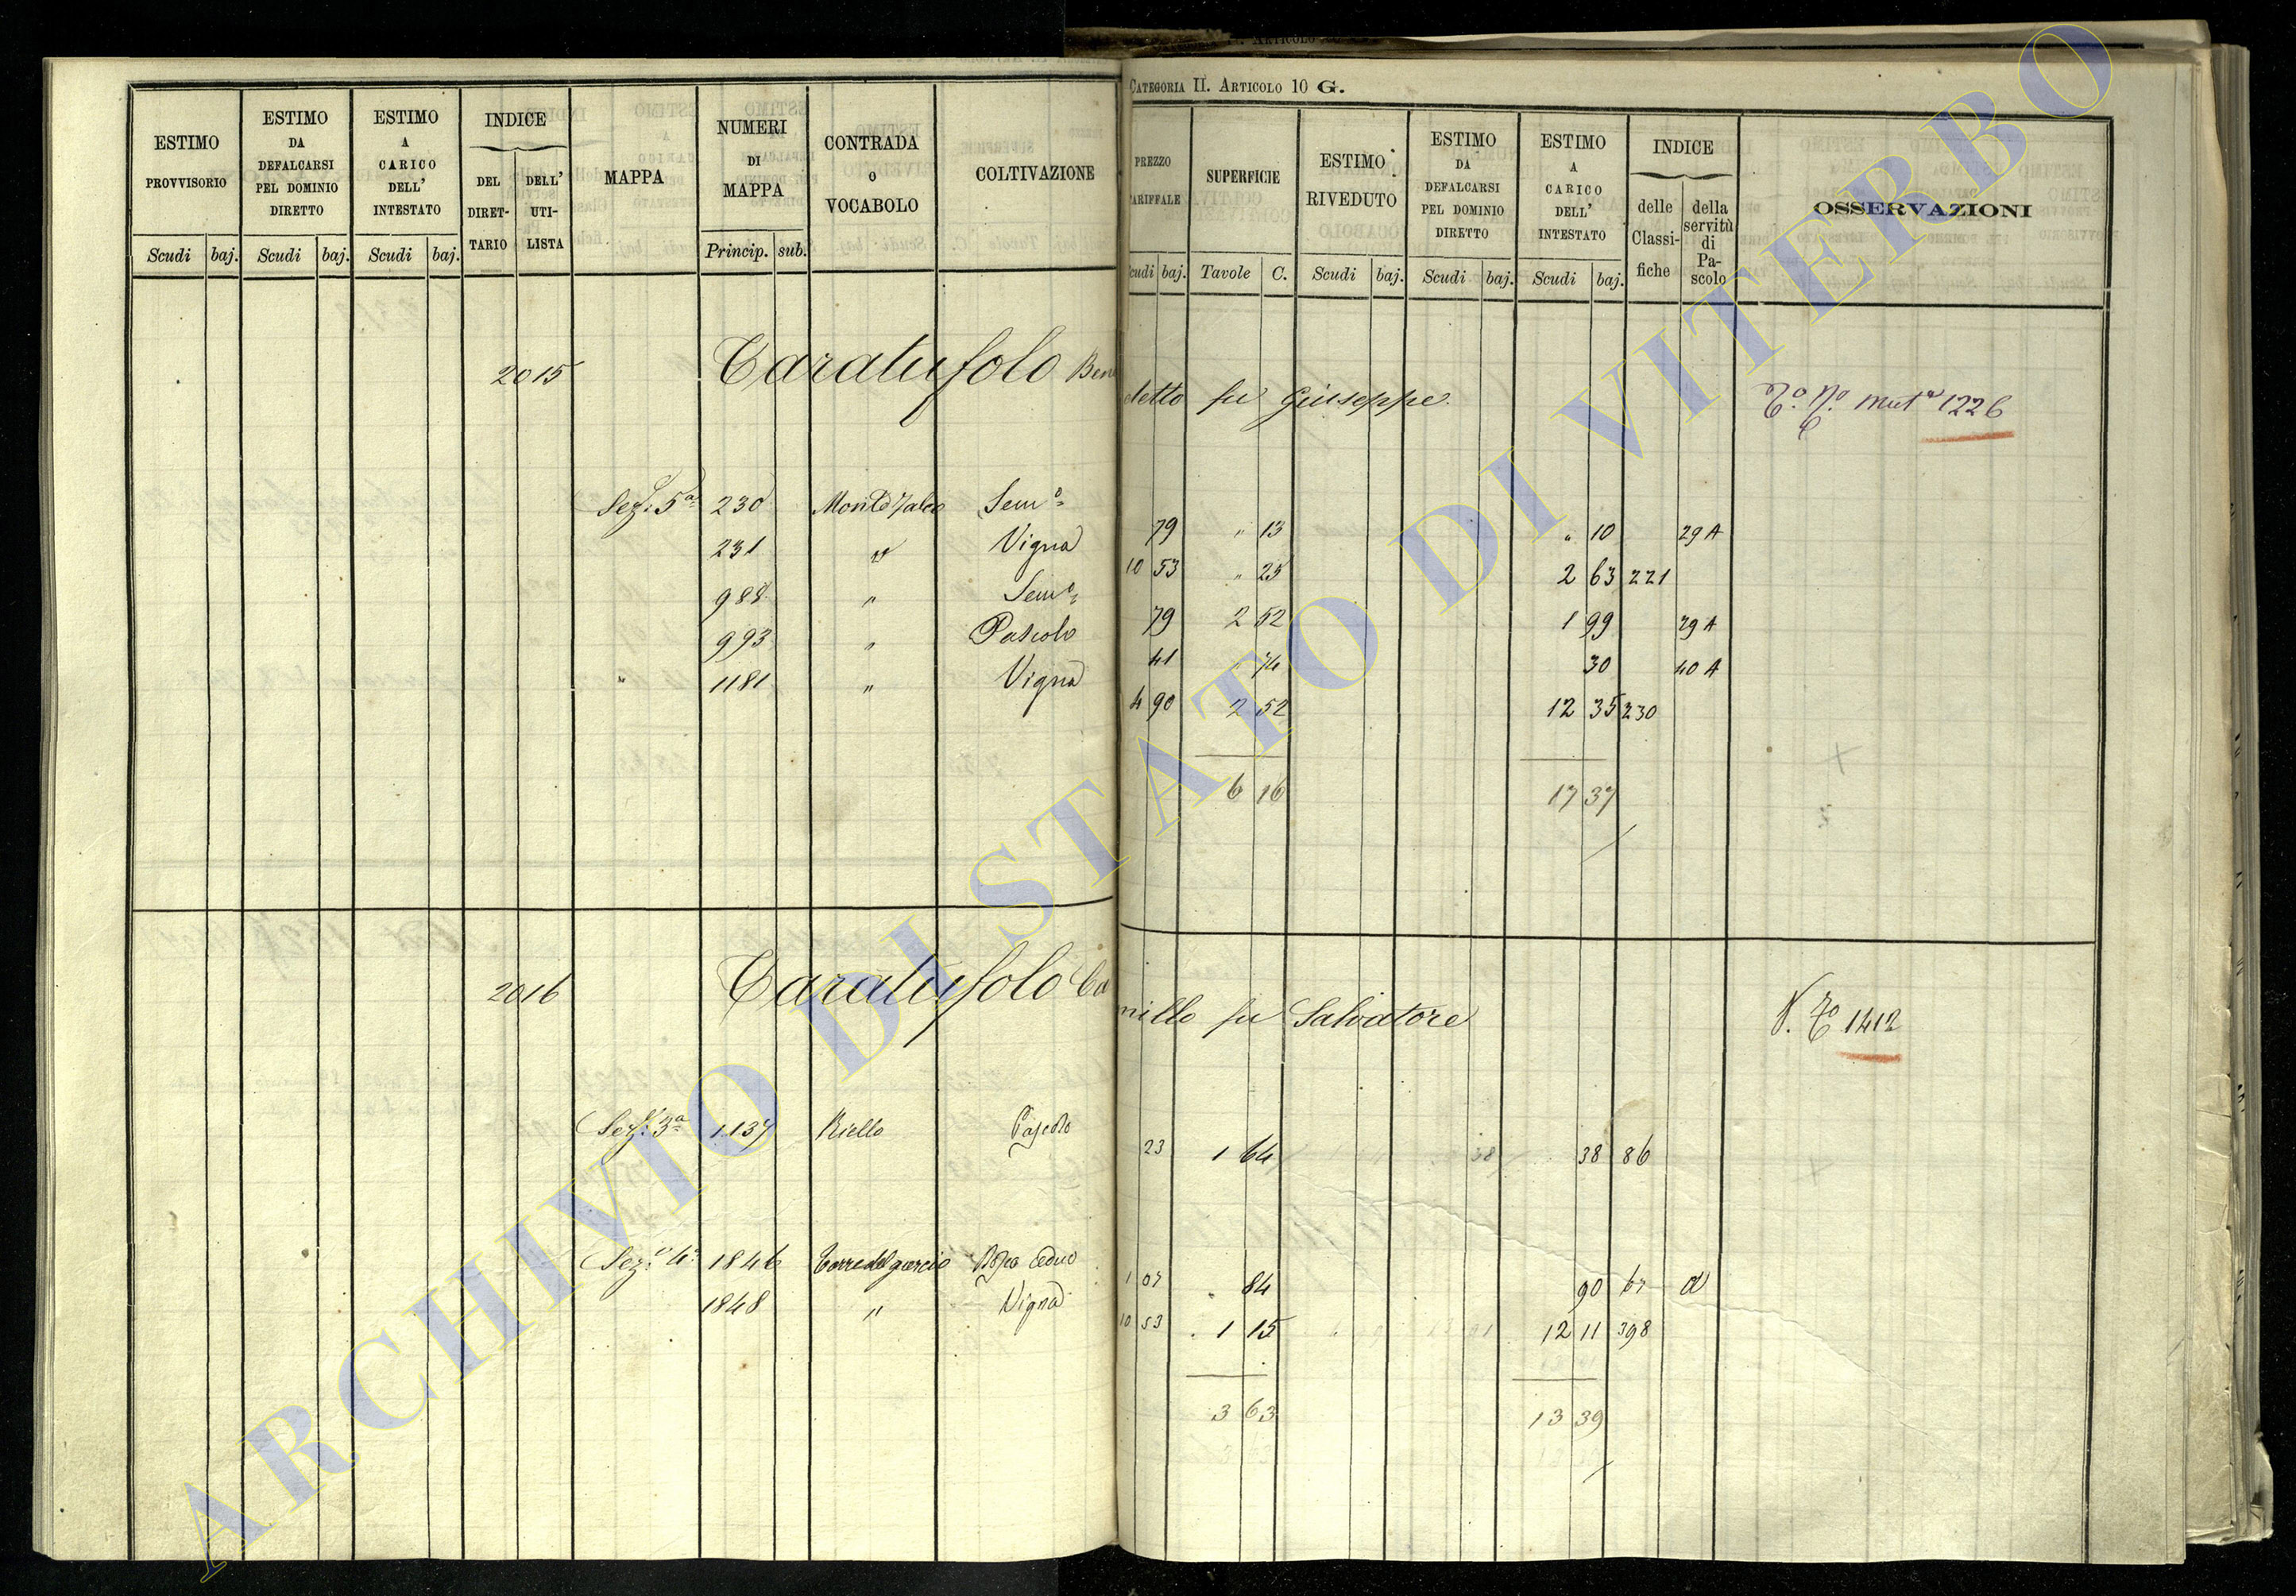 CATEGORIA II. ARTICOLO 10 G.
ESTIMO PROVVISORIO Scudi baj.
ESTIMO DA DEFALCARSI PEL DOMINIO DIRETTO Scudi baj.
ESTIMO A CARICO DELL' INTESTATO Scudi baj.
INDICE DEL DIRET-TARIO DELL' UTI-LISTA
MAPPA
NUMERI DI MAPPA Princip. sub.
CONTRADA O VOCABOLO
COLTIVAZIONE
PREZZO TARIFFALE Scudi baj.
SUPERFICIE Tavole C.
ESTIMO RIVEDUTO Scudi baj.
ESTIMO DA DEFALCARSI PEL DOMINIO DIRETTO Scudi baj.
ESTIMO A CARICO DELL' INTESTATO Scudi baj.
INDICE delle Classi-fiche della servitù di Pa-scolo
OSSERVAZIONI
2015 Caratufolo Benedetto fu Giuseppe. mut.a 1226
Sez: 5a 230 Sem.o 79 " 13 " 10 29 A
231 " Vigna 10 53 " 25 2 63 221
988 " Sem.o 79 2 52 1 99 29 A
993 " Pascolo 41 " 74 30 40 A
" 1181 " Vigna 4 90 2 52 12 35 230
6 16 17 37
2016 Caratufolo Camillo fu Salvatore 1412
Sez: 3a 1137 Riello Pascolo 23 1 64 38 86
Sez: 4a 1846 Bosco Ceduo 1 07 " 84 90 67 a
1848 " Vigna 10 53 1 15 12 11 398
3 63 13 39
ARCHIVIO DI STATO DI VITERBO